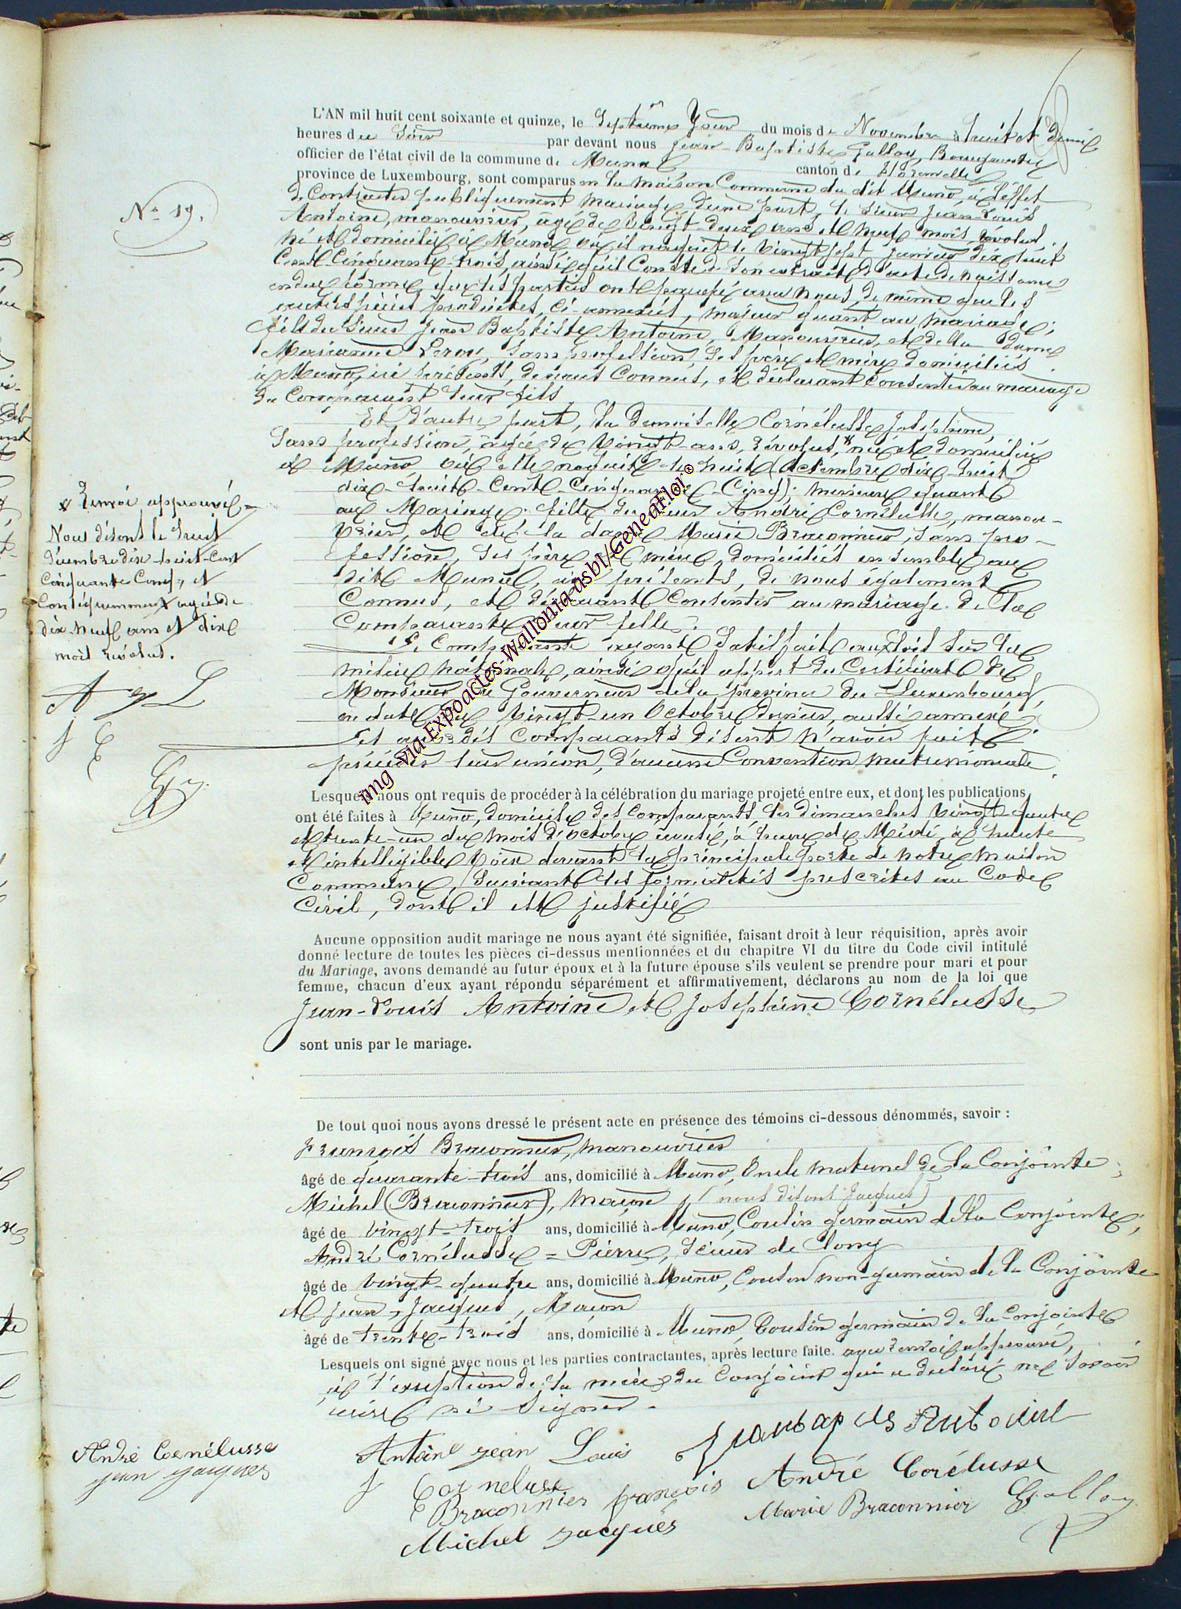 N° 19.
L'AN mil huit cent soixante et quinze, le Septième Jour du mois de Novembre à huit et demie
heures du Soir par devant nous Jean-Baptiste Galloy, Bourgmestre
officier de l'état civil de la commune de Muno canton de Florenville
province de Luxembourg, sont comparus en la maison Commune du dit Muno, à l'effet
de Contracter publiquement mariage d'une part, le Sieur Jean-Louis
Antoine, manouvrier, âgé de vingt-deux ans et neuf mois révolus,
né et domicilié à Muno où il naquit le vingt sept Janvier dix huit
Cent Cinquante-trois, ainsi qu'il Conste de son extrait d'acte de naissance
en due forme, que les parties ont nous, de même que les
autres pièces produites, ci-annexées, majeur quant au mariage;
fils du Sieur Jean Baptiste Antoine, Manouvrier, et de la Dame
Marianne Sans profession, Ses père et mère domiciliés
à Muno, ici présents, de nous Connus, et déclarant Consentir au mariage
du Comparant leur fils.
Et d'autre part, la Demoiselle Cornélusse Joséphine,
Sans profession, âgée de vingt ans révolus, * née et domiciliée
à Muno où elle naquit le huit Octembre dix huit
dix-huit-Cent Cinquante-Cinq; mineure quant
au Mariage. fille du Sieur André Cornélusse, manou-
vrier, et de la dame Marie Braconnier, Sans pro-
fession, Ses père et mère, domiciliés ensemble au
dit Muno, ici présents, de nous également
Connus, et déclarant Consentir au mariage de la
Comparante leur fille.
Le Comparant ayant Satisfait aux lois Sur la
milice nationale, ainsi qu'il appert du Certificat de
Monsieur le Gouverneur de la province du Luxembourg
en date du Vingt-un Octobre dernier, aussi annexé.
Et aux dits Comparants disent n'avoir fait
précéder leur union, d'aucune Convention matrimoniale.
x Renvoi approuvé =
Nous disons le huit
Décembre dix-huit-Cent
Cinquante Cinq, et
Conséquemment âgée de
dix-neuf ans et dix
mois révolus.
A J L
J C
Gy
Lesquels nous ont requis de procéder à la célébration du mariage projeté entre eux, et dont les publications
ont été faites à Muno, domicile des Comparants, les dimanches vingt-quatre
et trente-un du mois d'Octobre écoulé, à heure de Midi, à haute
et intelligible voix devant la principale porte de notre maison
Commune, Suivant les formalités prescrites au Code
Civil, dont il est justifié
Aucune opposition audit mariage ne nous ayant été signifiée, faisant droit à leur réquisition, après avoir
donné lecture de toutes les pièces ci-dessus mentionnées et du chapitre VI du titre du Code civil intitulé
du Mariage, avons demandé au futur époux et à la future épouse s'ils veulent se prendre pour mari et pour
femme, chacun d'eux ayant répondu séparément et affirmativement, déclarons au nom de la loi que
Jean-Louis Antoine et Joséphine Cornélusse
sont unis par le mariage.
De tout quoi nous avons dressé le présent acte en présence des témoins ci-dessous dénommés, savoir :
François Braconnier, manouvrier
âgé de quarante-trois ans, domicilié à Muno, Oncle maternel de la Conjointe;
Michel (Braconnier), maçon, (nous disons Jacques)
âgé de vingt-trois ans, domicilié à Muno, Cousin germain de la Conjointe;
André Cornélusse = Pierre, Scieur de long
âgé de vingt-quatre ans, domicilié à Muno, Cousin non-germain de la Conjointe
et Jean Jacques, Maçon
âgé de trente-trois ans, domicilié à Muno, Cousin germain de la Conjointe
Lesquels ont signé avec nous et les parties contractantes, après lecture faite. avec renvoi approuvé,
à l'exception de la mère du Conjoint qui a déclaré ne Savoir
écrire ni Signer.
André Cornélusse
jean jacques
Antoine jean Louis
Jean bap tis Antoine
J Cornelusse
Braconnier françois
André Corélusse
Michel Jacques
Marie Braconnier
Galloy
img via-Expoactes-Wallonia-asbl/Geneaflor©